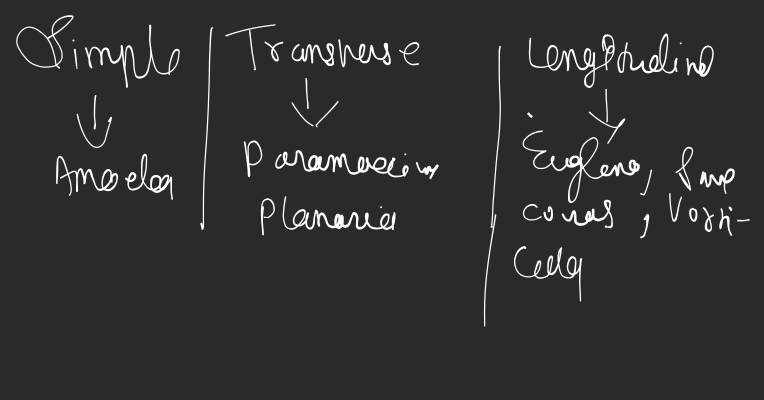 Simple
Amoeba
Transverse
Paramoecium
Planaria
Longitudinal
Euglena,
corals, Vorti-
cella